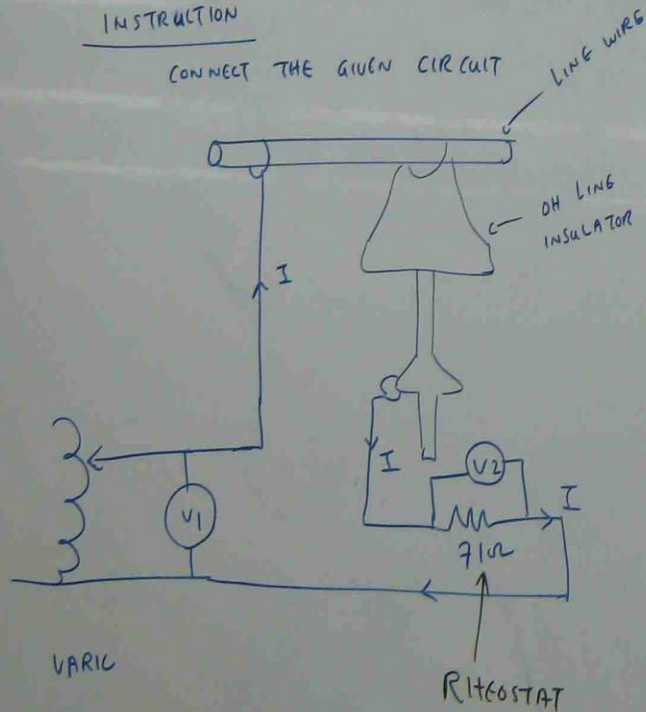 INSTRUCTION
CONNECT THE GIVEN CIRCUIT
LINE WIRE
OH LINE
INSULATOR
I
I
V2
I
V1
71Ω
VARIC
RHEOSTAT